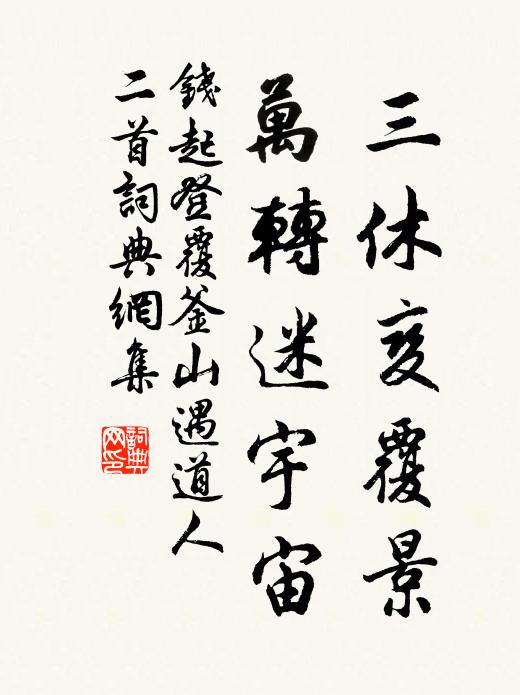 三休变覆景
萬轉迷宇宙
錢起登覆釜山遇道人
二首詞典網集
詞典
网印